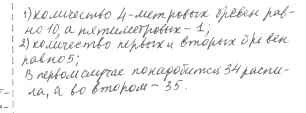 1) количество 4-метровых брёвен рав-
но 10, а пятиметровых - 1;
2) количество первых и вторых брёвен
равно 5;
В первом случае понадобится 34 распи-
ла, а во втором - 35.